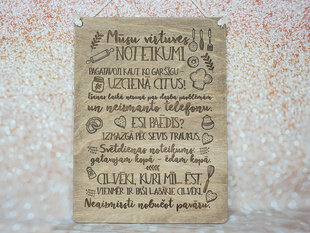 Mūsu virtuves
NOTEIKUMI
PAGATAVOJ KAUT KO GARŠĪGU -
UZCIENĀ CITUS!
Ēdienu laikā nerunā par darba problēmām
un neizmanto telefonu.
ESI PAĒDIS?
IZMAZGĀ PĒC SEVIS TRAUKUS.
Svētdienas noteikums:
gatavojam kopā - ēdam kopā.
CILVĒKI, KURI MĪL ĒST,
VIENMĒR IR PAŠI LABĀKIE CILVĒKI.
Neaizmirsti nobučot pavāru.